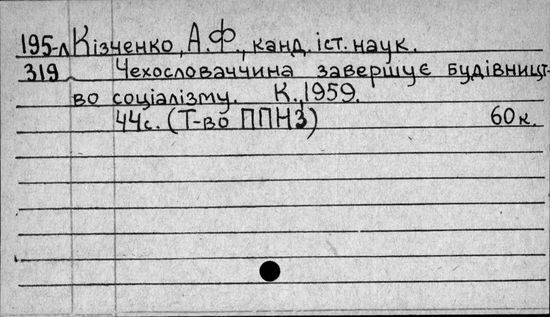 195-л Кізченко, А.Ф., канд. іст. наук.
319 Чехословаччина завершує будівницт-
во соціалізму. К., 1959.
44с. (Т-во ППНЗ) 60к.